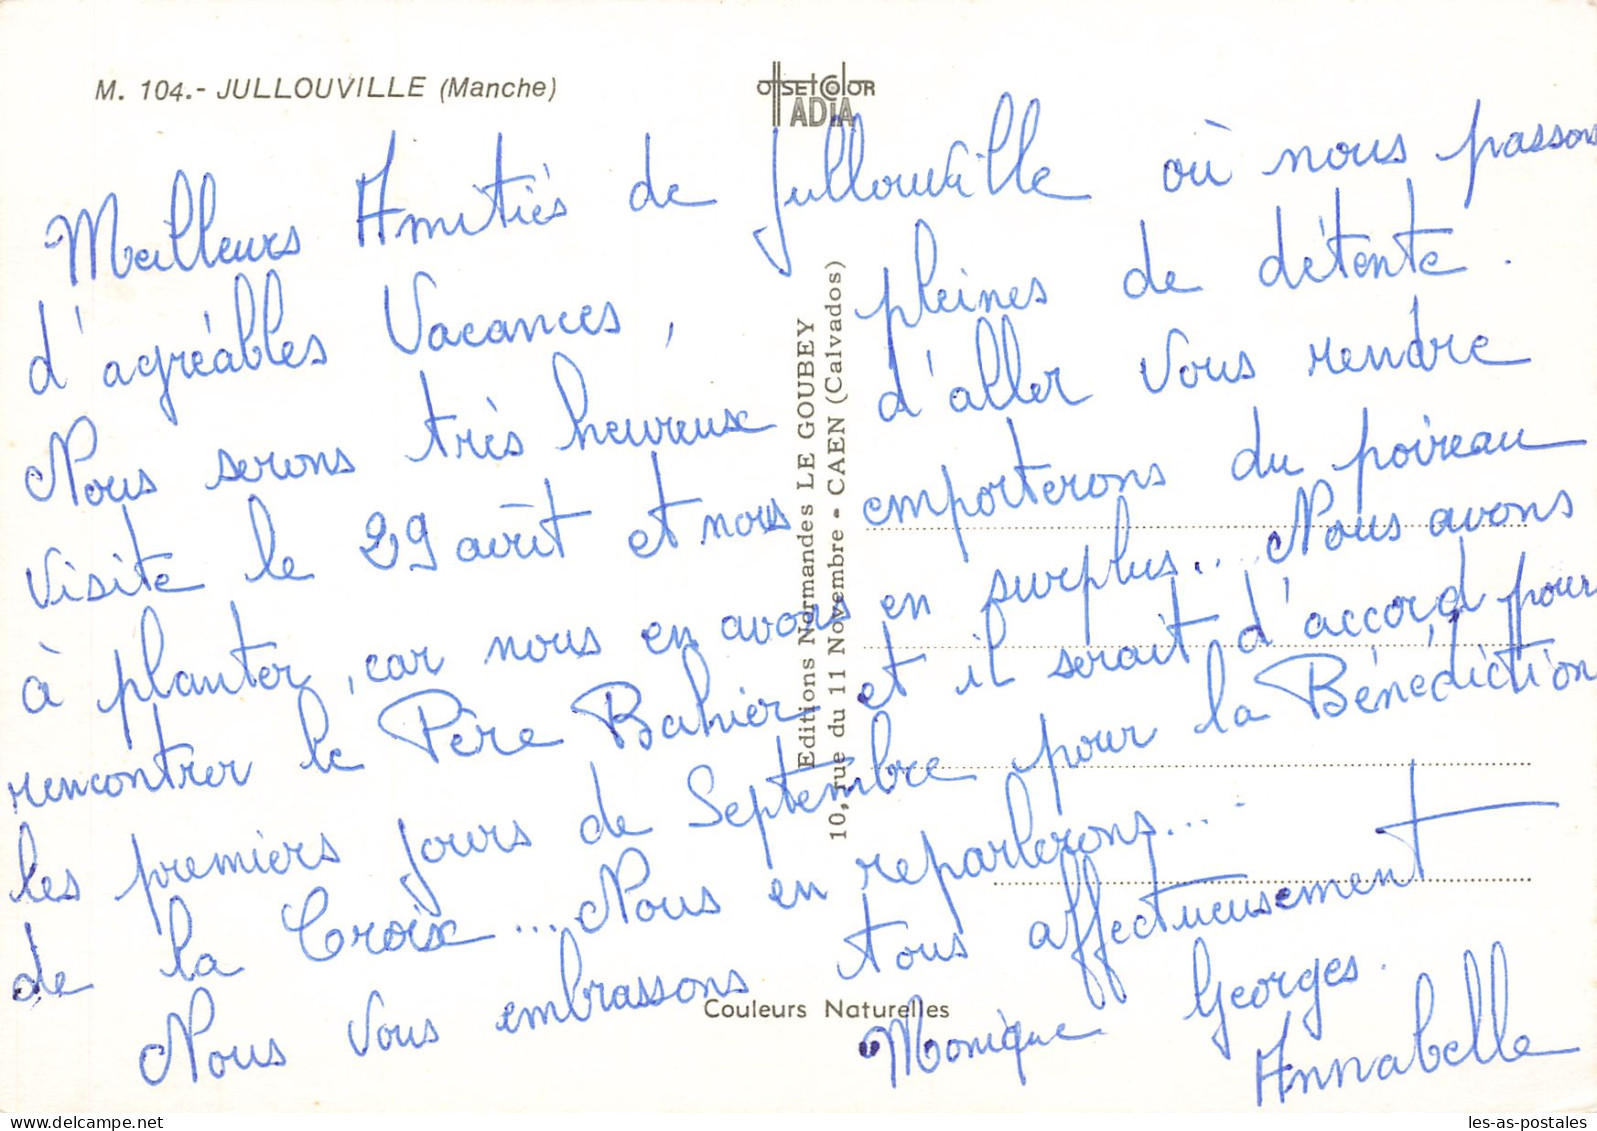 M. 104.- JULLOUVILLE (Manche)
OffSETCOlOR
ADIA
Meilleurs Amitiés de Jullouville où nous passons
d'agréables Vacances, pleines de détente.
Nous serons très heureux d'aller vous rendre
visite le 29 août et nous emporterons du poireau
à planter, car nous en avons en surplus... Nous avons
rencontrer le Père Bahier et il serait d'accord pour
les premiers jours de Septembre pour la Bénédiction
de la Croix... Nous en reparlerons...
Nous vous embrassons tous affectueusement
Monique Georges.
Annabelle
Editions Normandes LE GOUBEY
10, rue du 11 Novembre - CAEN (Calvados)
Couleurs Naturelles
les-as-postales